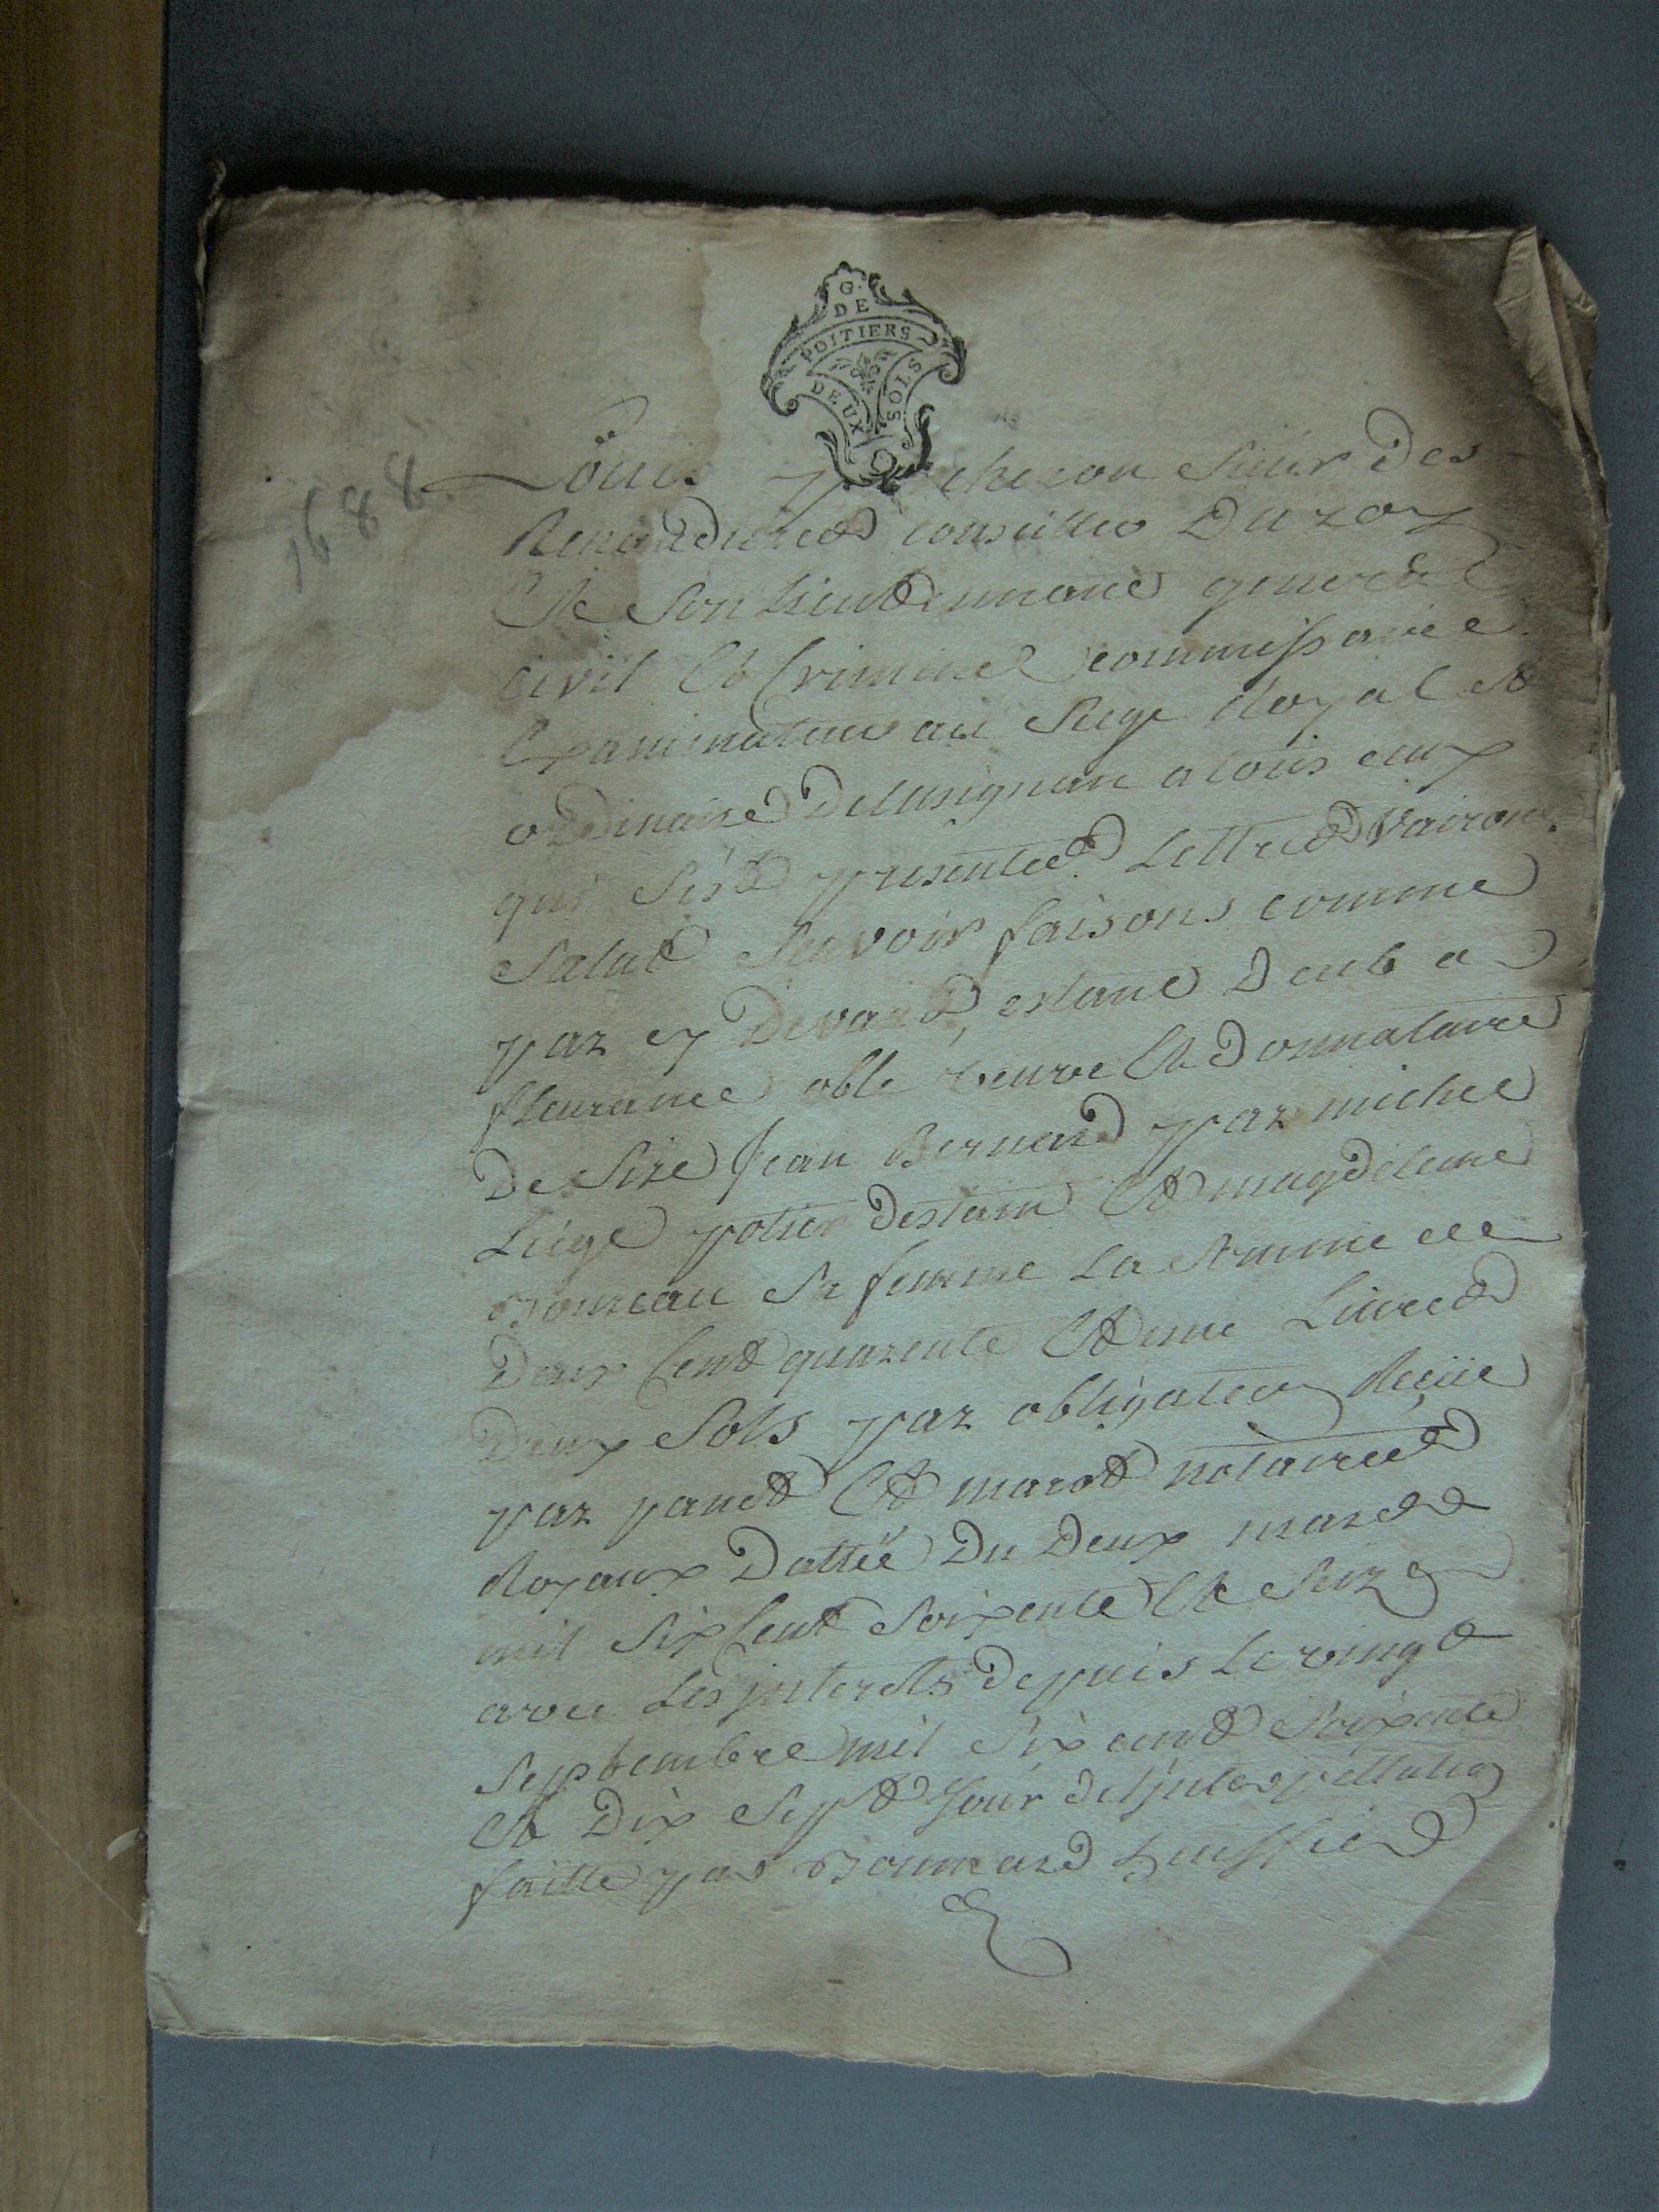 G.
DE
POITIERS
DEUX SOLS
1688
Louis sieur Des
conseiller Du roy
Et son Lieutennant general
civil Et Criminel commissaire
Examinateur au siege Royal et
ordinaire Delusignan a tous ceux
qui ses presentes Lettres vairont
salut sçavoir faisons comme
par cy Devant estant Deub a
fleurance oble veuve Et Donnataire
De sire Jean Bernard par michel
Liége potier destain Et magdelene
Bonneau sa femme La somme de
Deux Cent quarente Et une Livres
Deux sols par obligation Reçüe
par Et marot notaires
Royaux Dattée Du Deux mars
mil six Cent soixente Et seize
avec Les jnterets Depuis Le vingt
septembre mil six cent soixente
Et Dix sept Jour de l'jnterpellation
faitte par Bonnard huissier